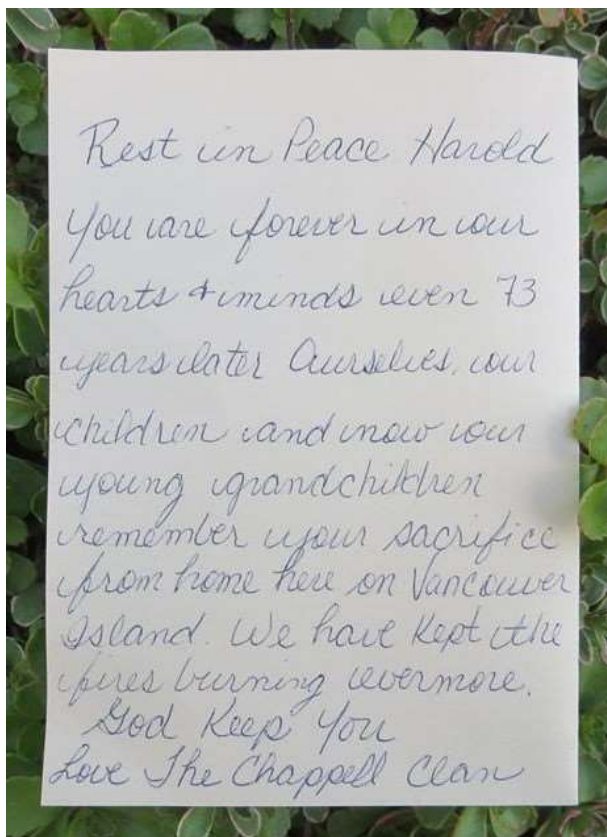 Rest in Peace Harold
You are forever in our
hearts & minds even 73
years later Ourselves, our
children and now our
young grandchildren
remember your sacrifice
from home here on Vancouver
Island. We have kept the
fires burning evermore.
God Keep You
Love The Chappell Clan